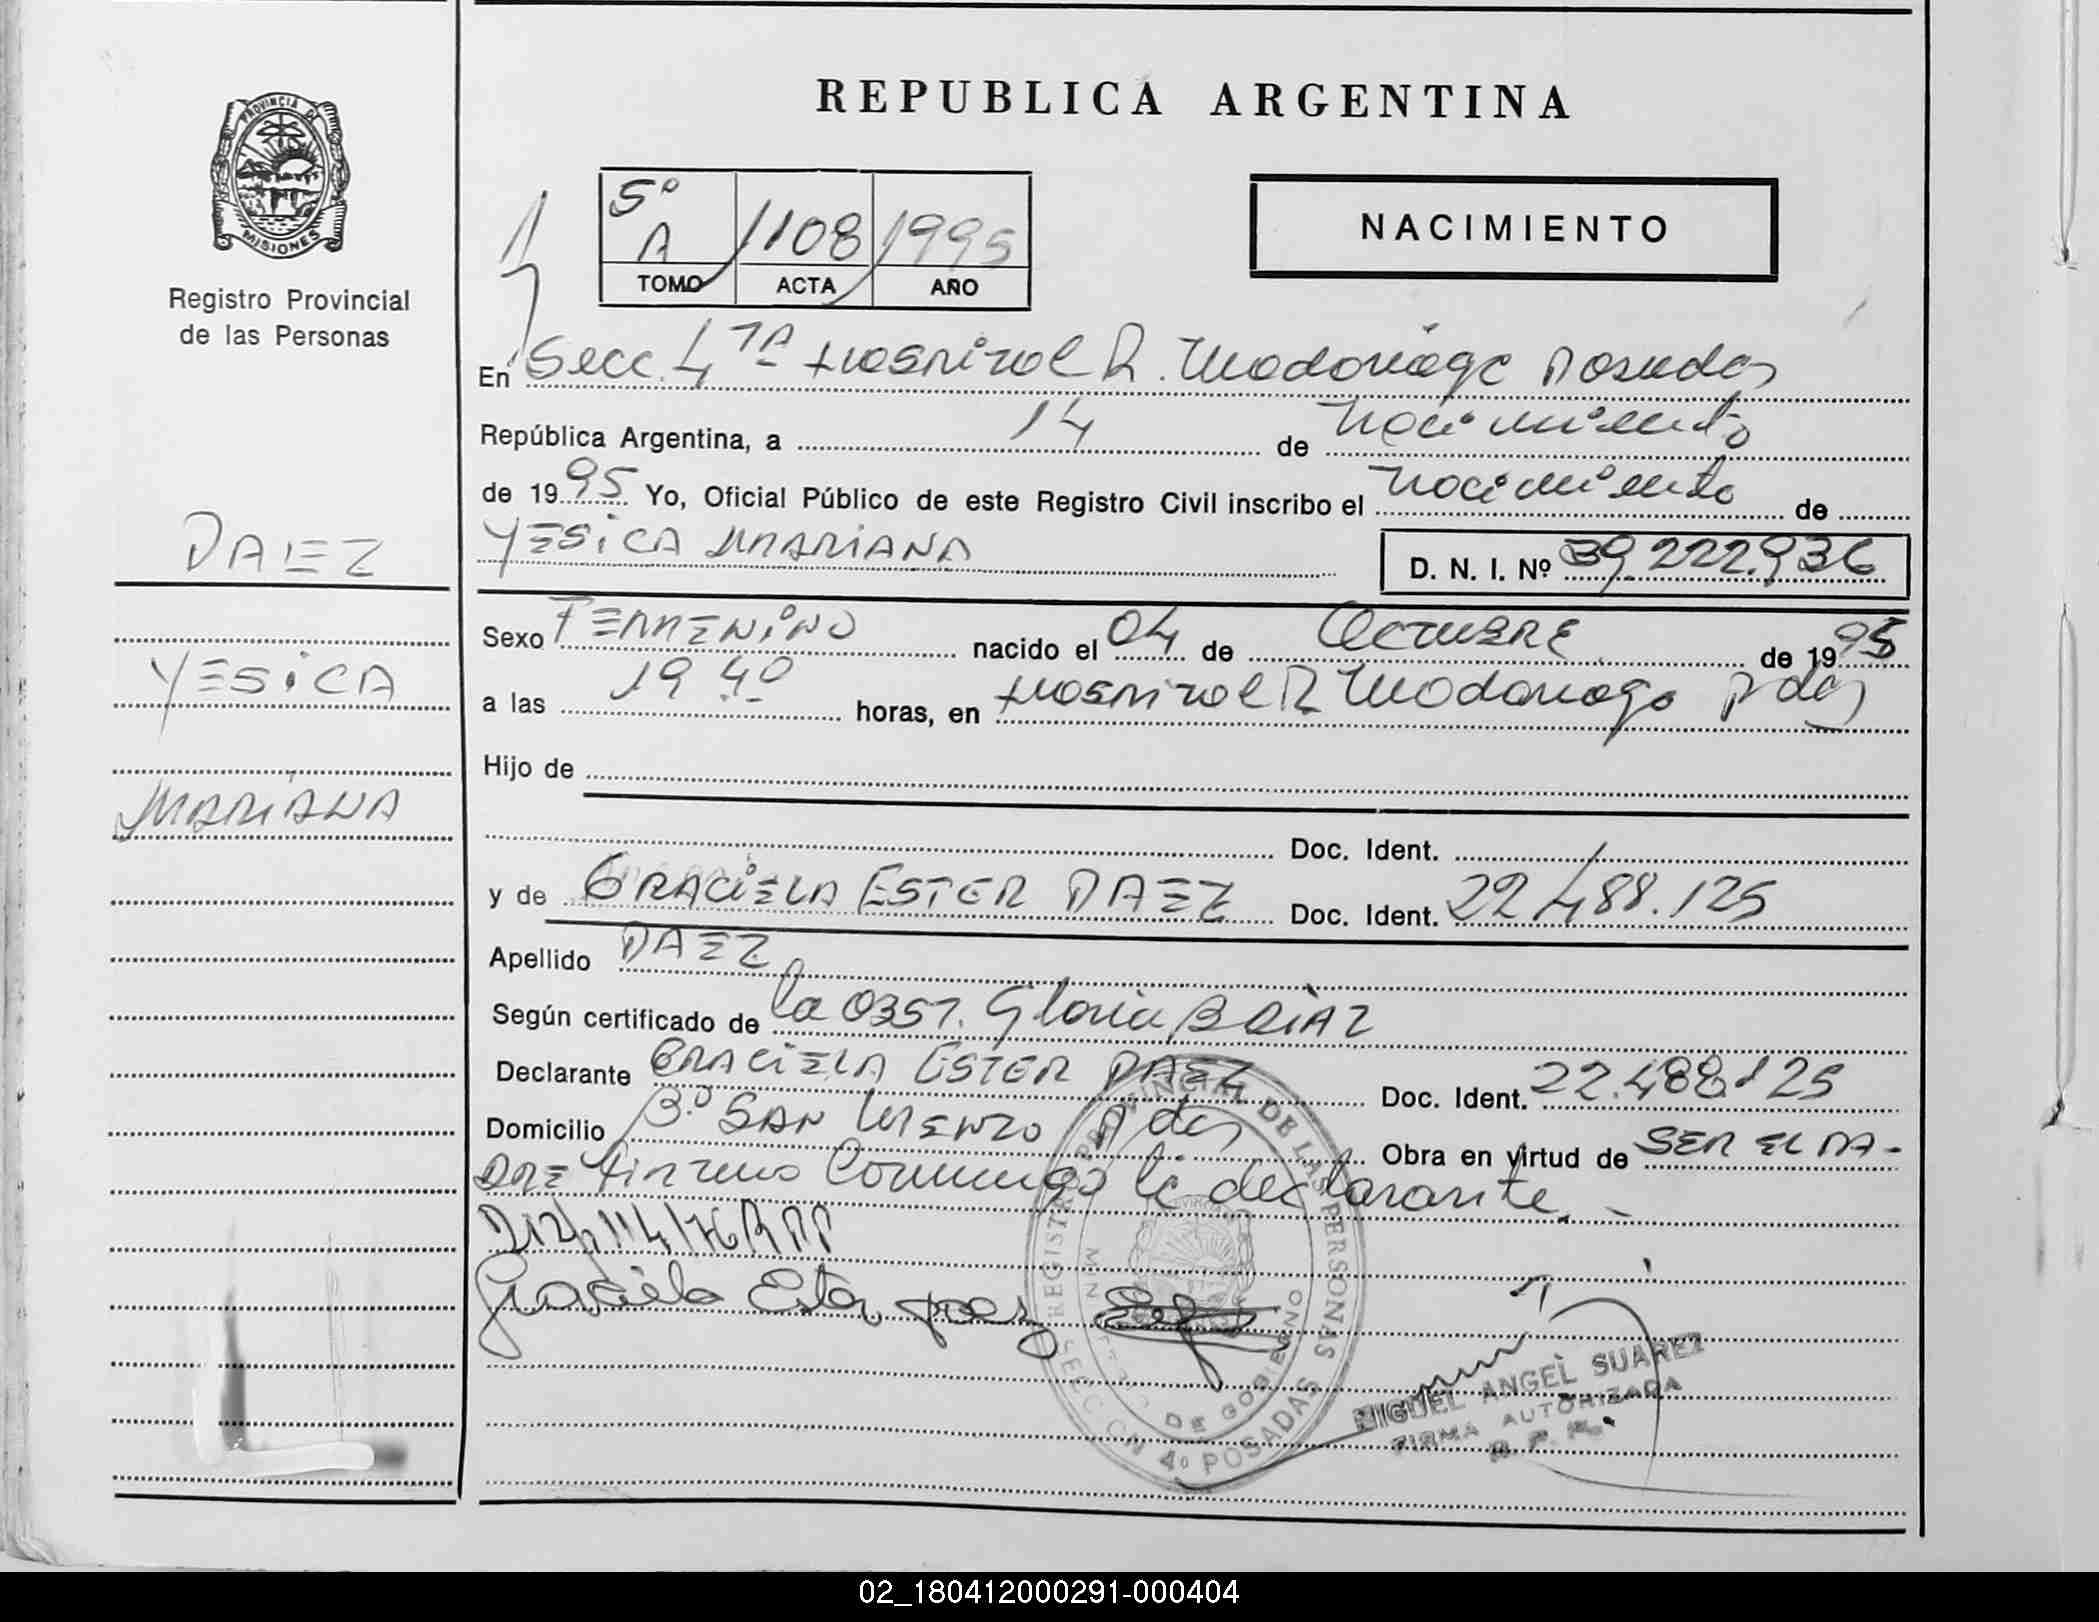 REPUBLICA ARGENTINA
PROVINCIA DE MISIONES
Registro Provincial
de las Personas
5º A 1108 1995
TOMO ACTA AÑO
NACIMIENTO
En Secc. 4TA Hospital R. Madariaga Posadas
República Argentina, a 14 de Nacimiento
de 1995 Yo, Oficial Público de este Registro Civil inscribo el Nacimiento de
YESICA MARIANA D. N. I. Nº 39.222.936
DAEZ
YESICA
MARIANA
Sexo FEMENINO nacido el 04 de OCTUBRE de 1995
a las 19 40 horas, en Hospital R Madariaga Pdas
Hijo de
Doc. Ident.
y de GRACIELA ESTER DAEZ Doc. Ident. 22.488.125
Apellido DAEZ
Según certificado de la OBST. Gloria B DIAZ
Declarante GRACIELA ESTER DAEZ Doc. Ident. 22.488.125
Domicilio Bº SAN LORENZO Pdas Obra en virtud de SER EL PA-
DRE firman Conmigo la declarante.-
Graciela Ester
REGISTRO PROVINCIAL DE LAS PERSONAS
SECCION 4º POSADAS
MINISTERIO DE GOBIERNO
MIGUEL ANGEL SUAREZ
FIRMA AUTORIZADA
R. P. P.
02_180412000291-000404